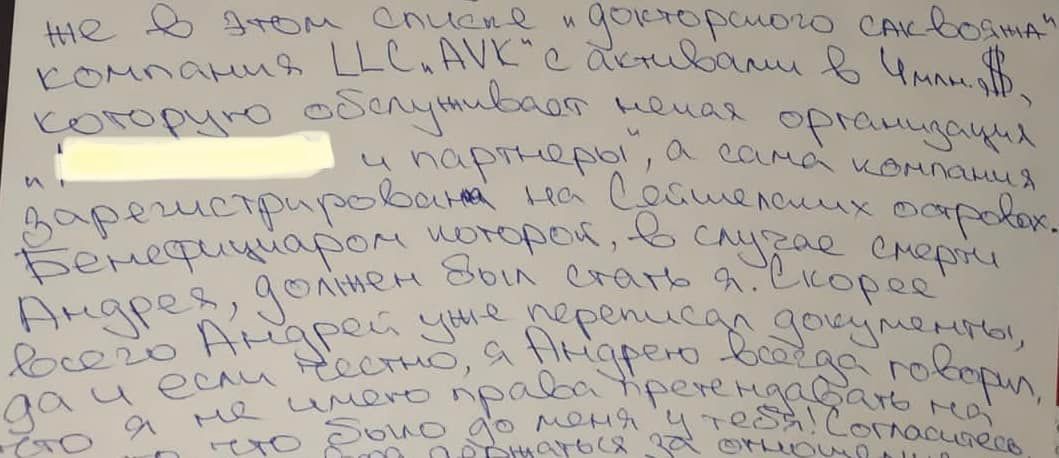 же в этом списке „докторского саквояжа"
компания LLC „AVK" с активами в 4 млн.$,
которую обслуживает некая организация
„ и партнеры", а сама компания
зарегистрирована на Сейшелских островах.
Бенефициаром которой, в случае смерти
Андрея, должен был стать я. Скорее
всего Андрей уже переписал документы,
да и если честно, я Андрею всегда говорил,
что я не имею права претендавать на
что было до меня у тебя! Согласитесь
держаться за